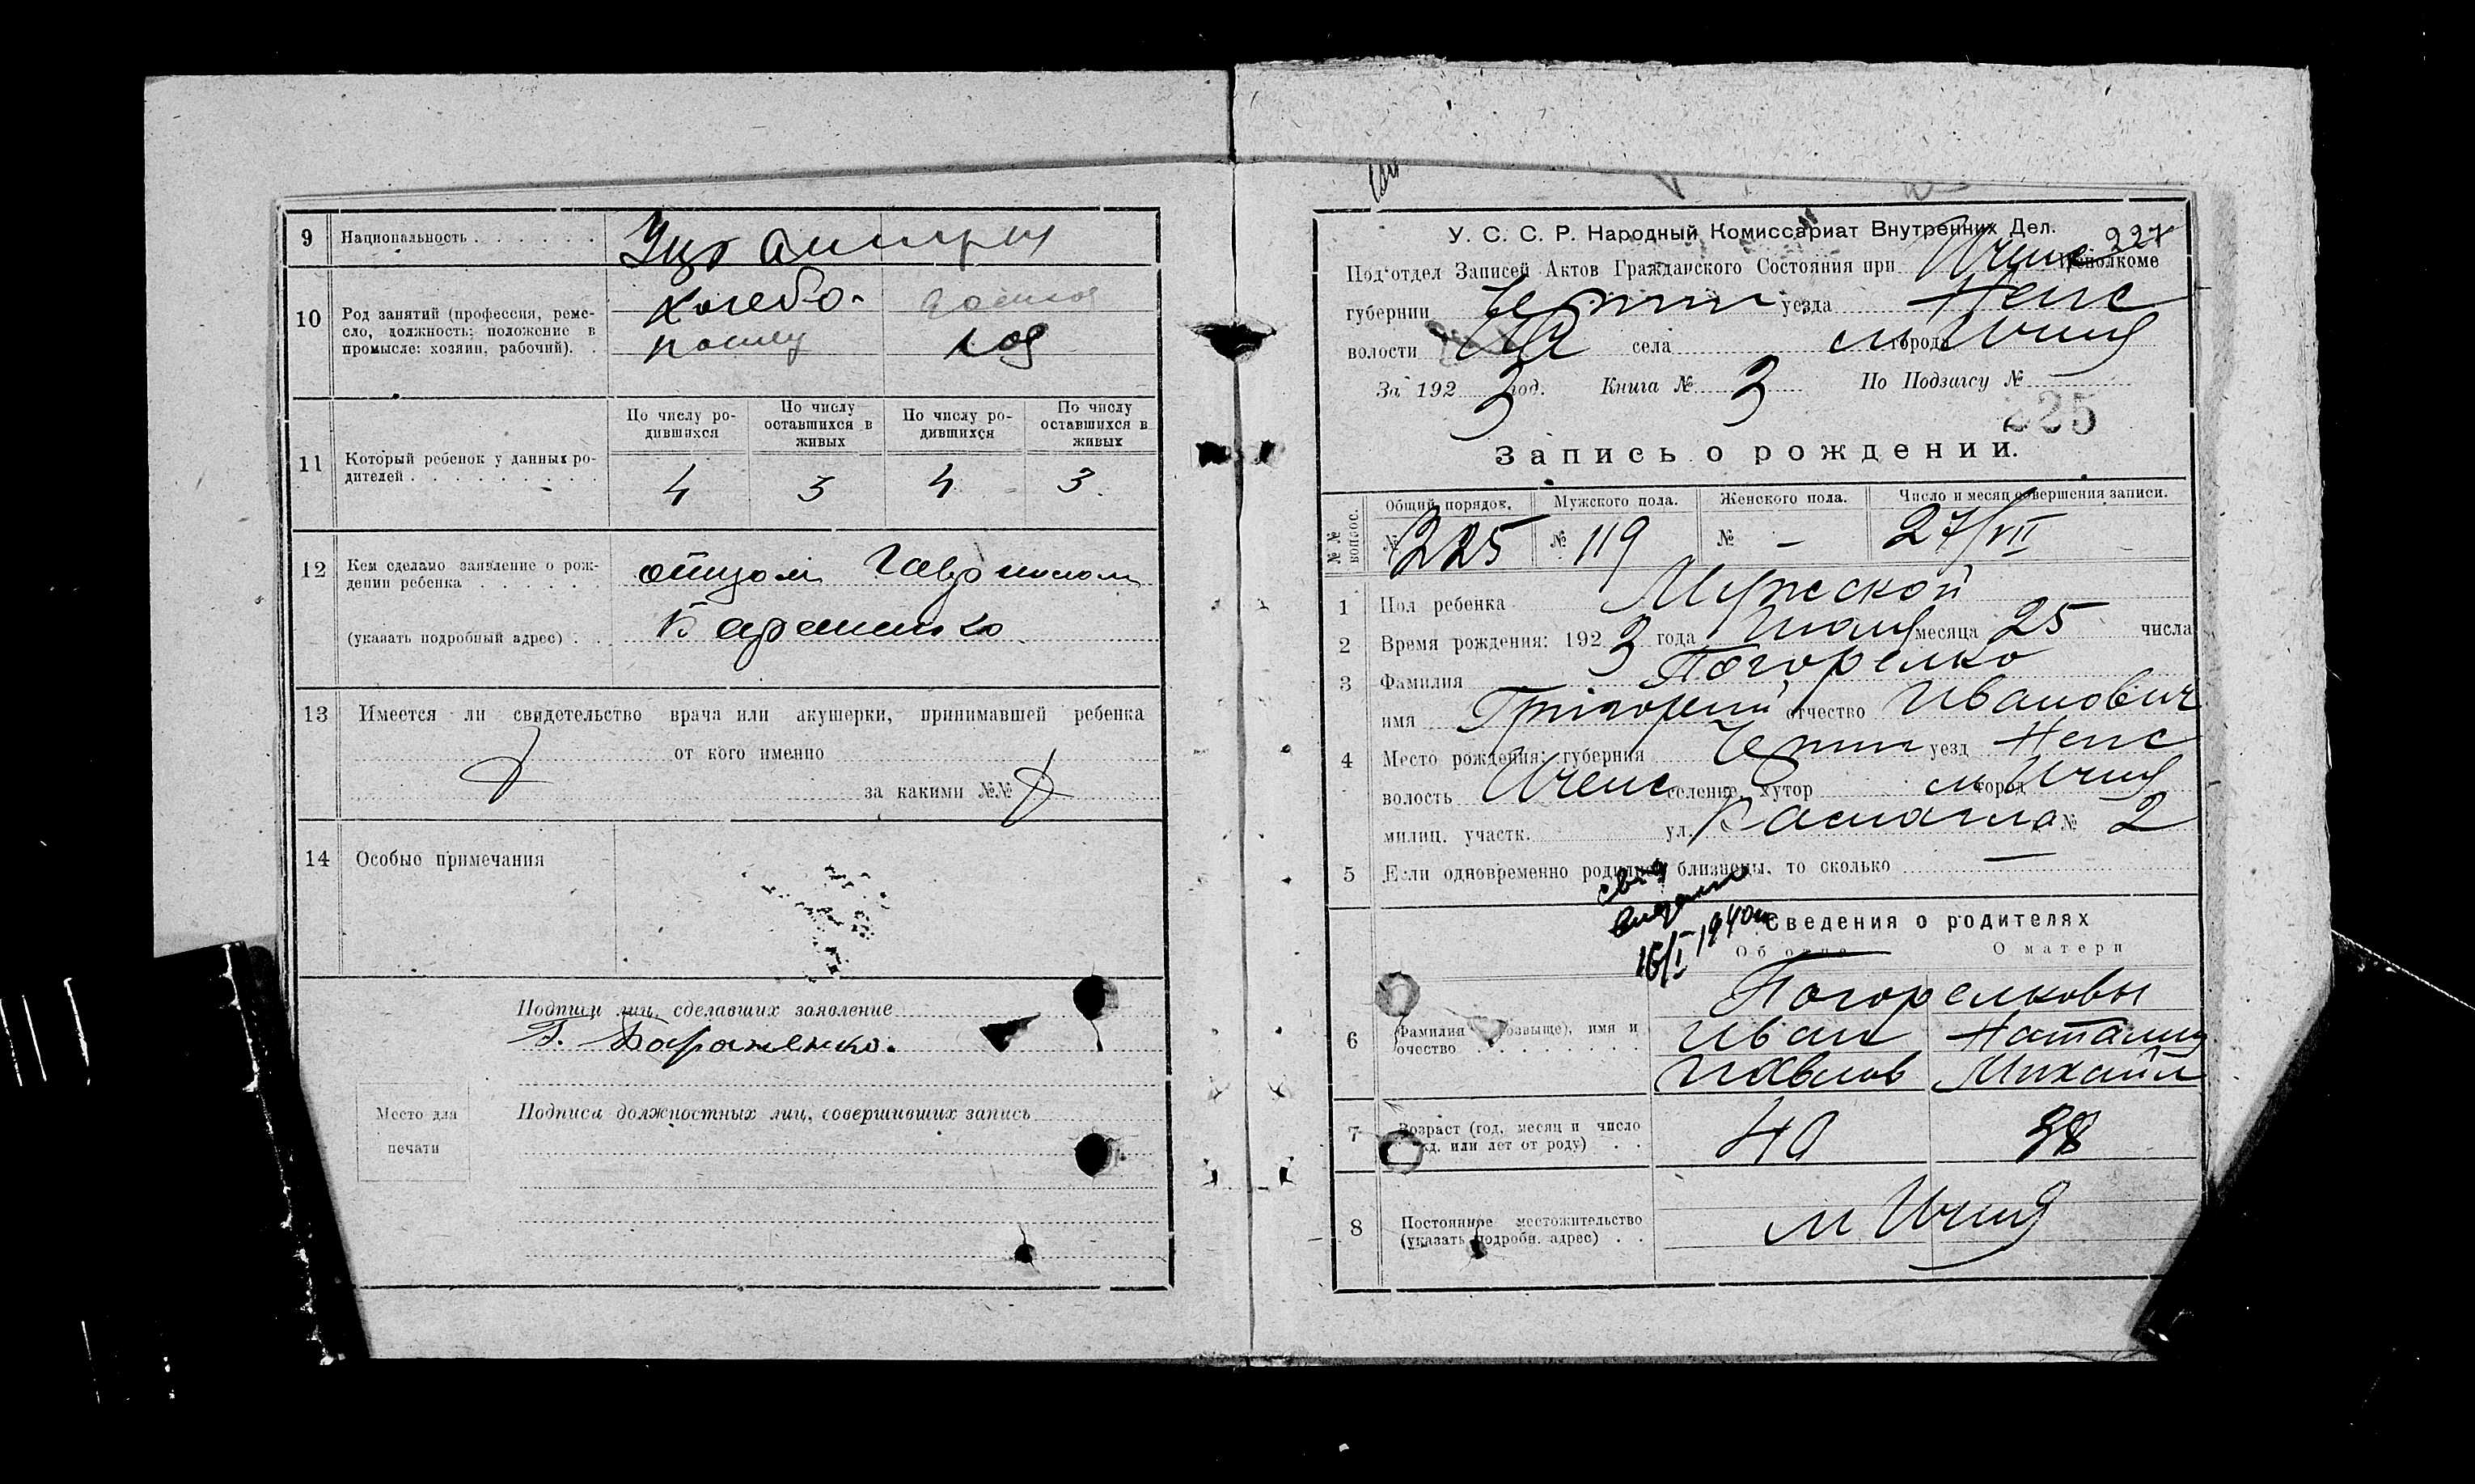 9 Национальность . . . . . .
Украинцы
10 Род занятий (профессия, ремес-
сло, должность; положение в
промысле: хозяин, рабочий). .
Хлебо-
пашец
11 Который ребенок у данных ро-
дителей . . . . . . . . . .
По числу ро-
дившихся
По числу
оставшихся в
живых
По числу ро-
дившихся
По числу
оставшихся в
живых
4 3 4 3.
12 Кем сделано заявление о рож-
дении ребенка . . . . . .
(указать подробный адрес) . .
отцом
13 Имеется ли свидетельство врача или акушерки, принимавшей ребенка
от кого именно
за какими №№
14 Особые примечания
Подписи лиц, сделавших заявление
Г. Бараненко.
Место для
печати
Подписи должностных лиц, совершивших запись
У. С. С. Р. Народный Комиссариат Внутренних Дел. 227
Под'отдел Записей Актов Гражданского Состояния при Ичнс Исполкоме
губернии Черниг уезда Неж с
волости села города м Ичня
За 1923 год. Книга № 3 По Подзагсу №
225
Запись о рождении.
№№ вопрос.
Общий порядок. Мужского пола. Женского пола. Число и месяц совершения записи.
№ 225 № 119 № – 27/VII
1 Пол ребенка Мужской
2 Время рождения: 1923 года месяца 25 числа
3 Фамилия Погорелко
имя Григорий отчество Иванович
4 Место рождения: губерния Черниг уезд Неж с
волость Иченс селение, хутор город м Ичня
милиц. участк. ул. № 2
5 Если одновременно родились близнецы, то сколько —
выдано
16/I 1940
Сведения о родителях
Об отце О матери
6 Фамилия (прозвище), имя и
очество . . . . . . . . .
Погорелковы
Иван Наталия
Павлов Михайл
7 Возраст (год, месяц и число
рожд. или лет от роду) . .
40 38
8 Постоянное местожительство
(указать подробн. адрес) . .
м Ичня